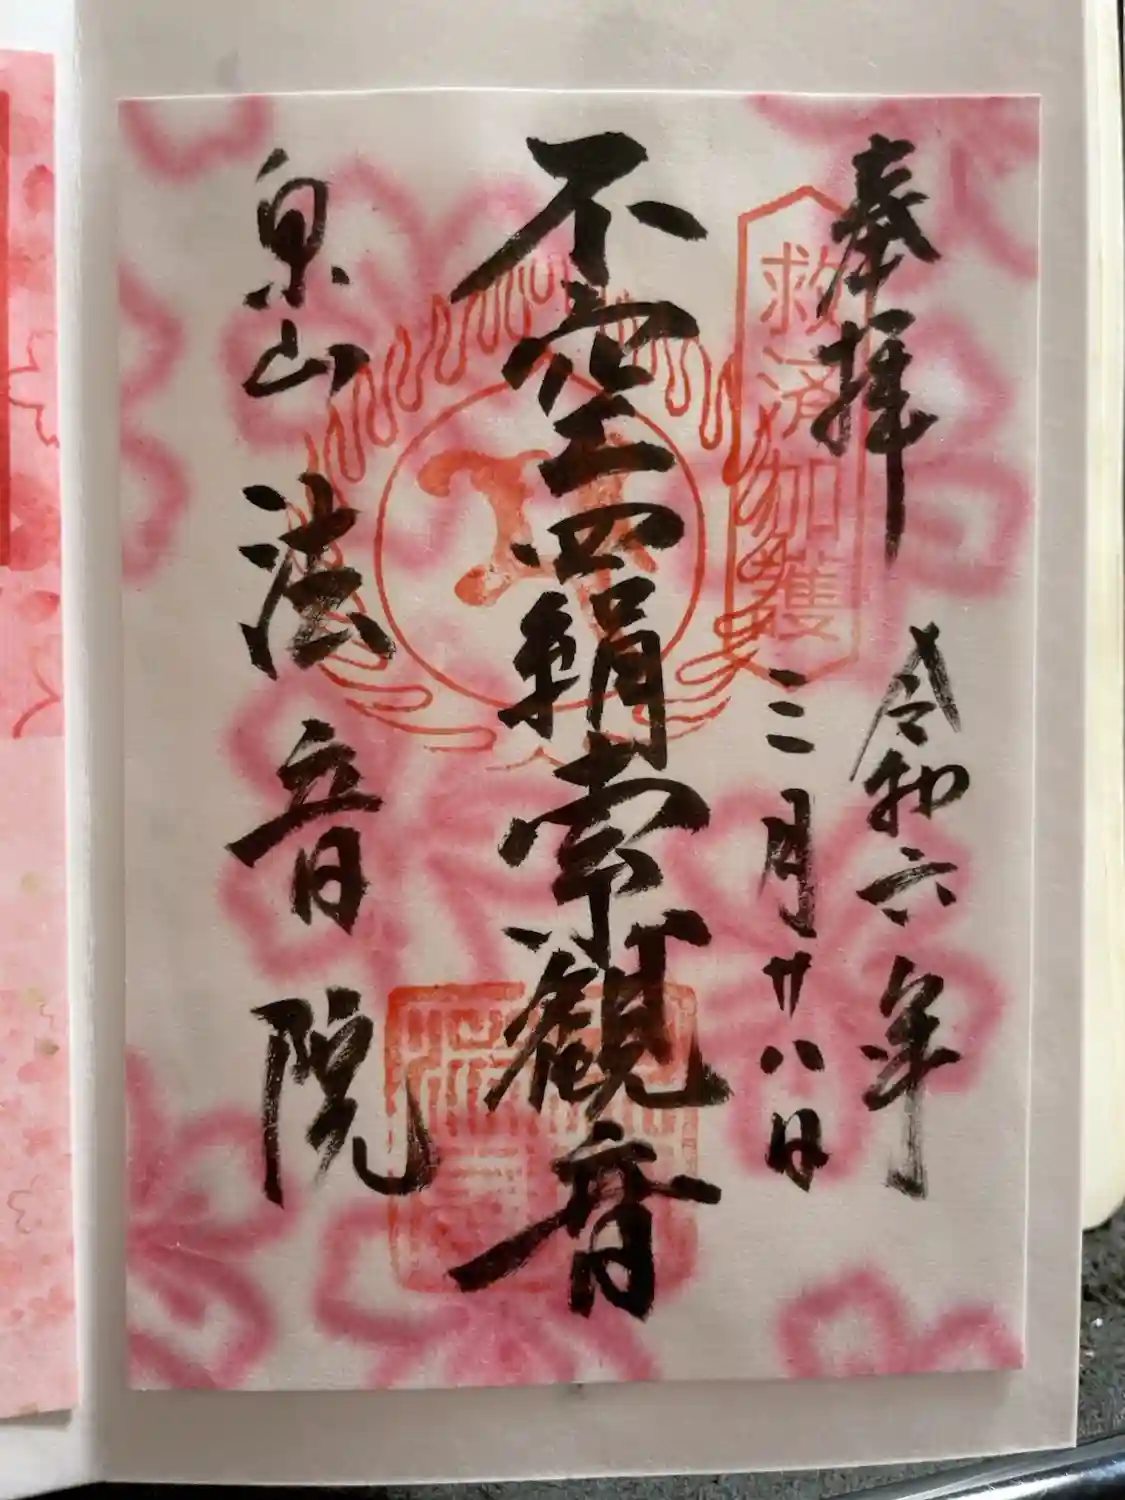 奉拝
救済加護
令和六年
三月廿八日
不空羂索観音
泉山 法音院